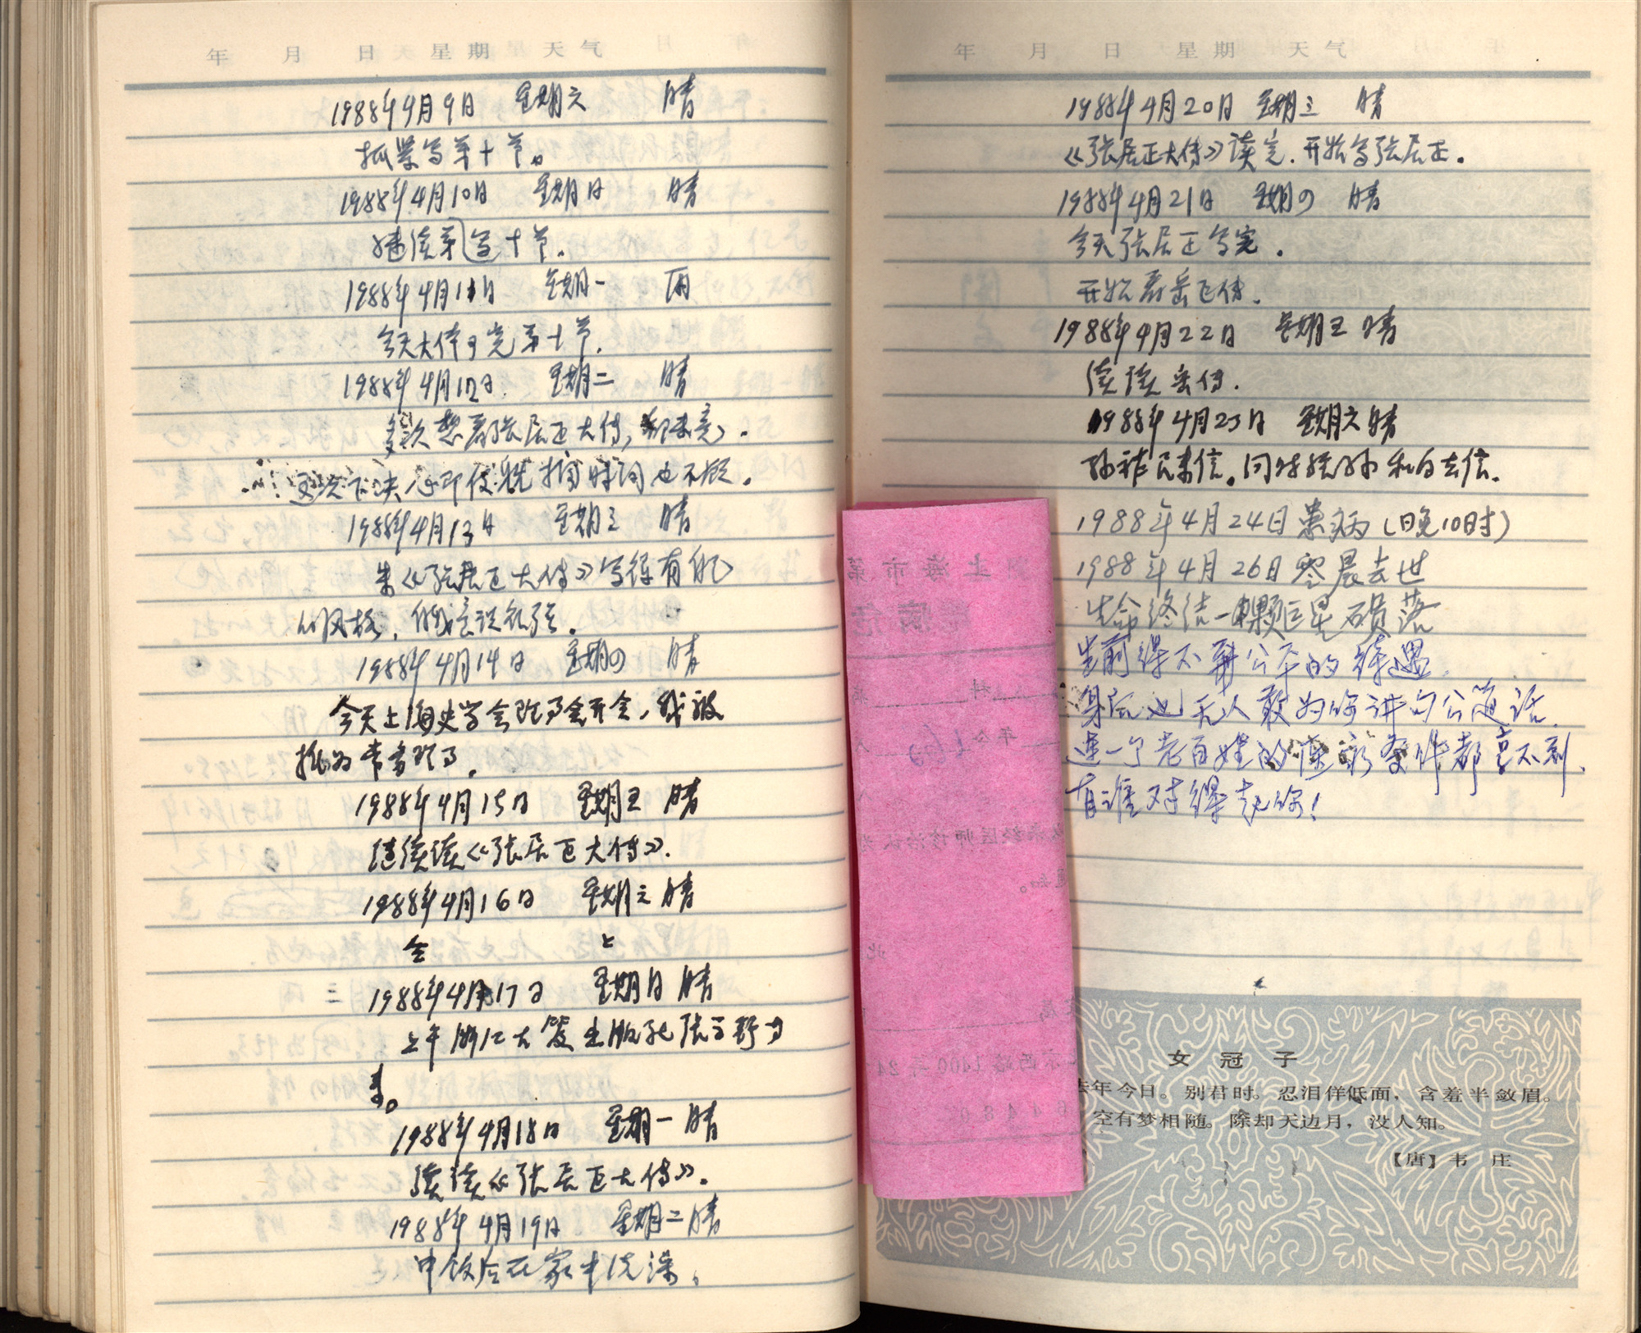 年 月 日 星期 天气
1988年4月9日 星期六 晴
抓紧写第十节。
1988年4月10日 星期日 晴
继续第写十节.
1988年4月11日 星期一 雨
今天大体写完第十节.
1988年4月12日 星期二 晴
多次想看张居正大传,
下决心即使 时间也不顾.
1988年4月13日 星期三 晴
朱《张居正大传》写得有
风格,
1988年4月14日 星期四 晴
今天上海史学会改了会开会,我被
推为常务理事.
1988年4月15日 星期五 晴
继续读《张居正大传》.
1988年4月16日 星期六 晴
仝 上
1988年4月17日 星期日 晴
上午浙江大 出版 张
来。
1988年4月18日 星期一 晴
续读《张居正大传》.
1988年4月19日 星期二 晴
中饭后在家中洗澡.
年 月 日 星期 天气
1988年4月20日 星期三 晴
《张居正大传》读完.开始写张居正.
1988年4月21日 星期四 晴
今天张居正写完.
开始看岳飞传.
1988年4月22日 星期五 晴
续读岳传.
1988年4月23日 星期六 晴
孙 来信。同时给孙和 去信.
1988年4月24日患病(日晚10时)
1988年4月26日零晨去世
生命终结一颗巨星殒落
生前得不到公平的待遇
身后也无人敢为你讲句公道话.
连一个老百姓的 条件都享不到.
有谁对得起你!
女冠子
去年今日。别君时。忍泪佯低面,含羞半敛眉。
空有梦相随。除却天边月,没人知。
【唐】韦庄